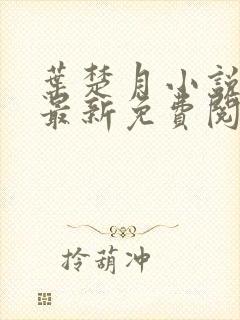 葉楚月小說
最新免費閱
拎葫冲